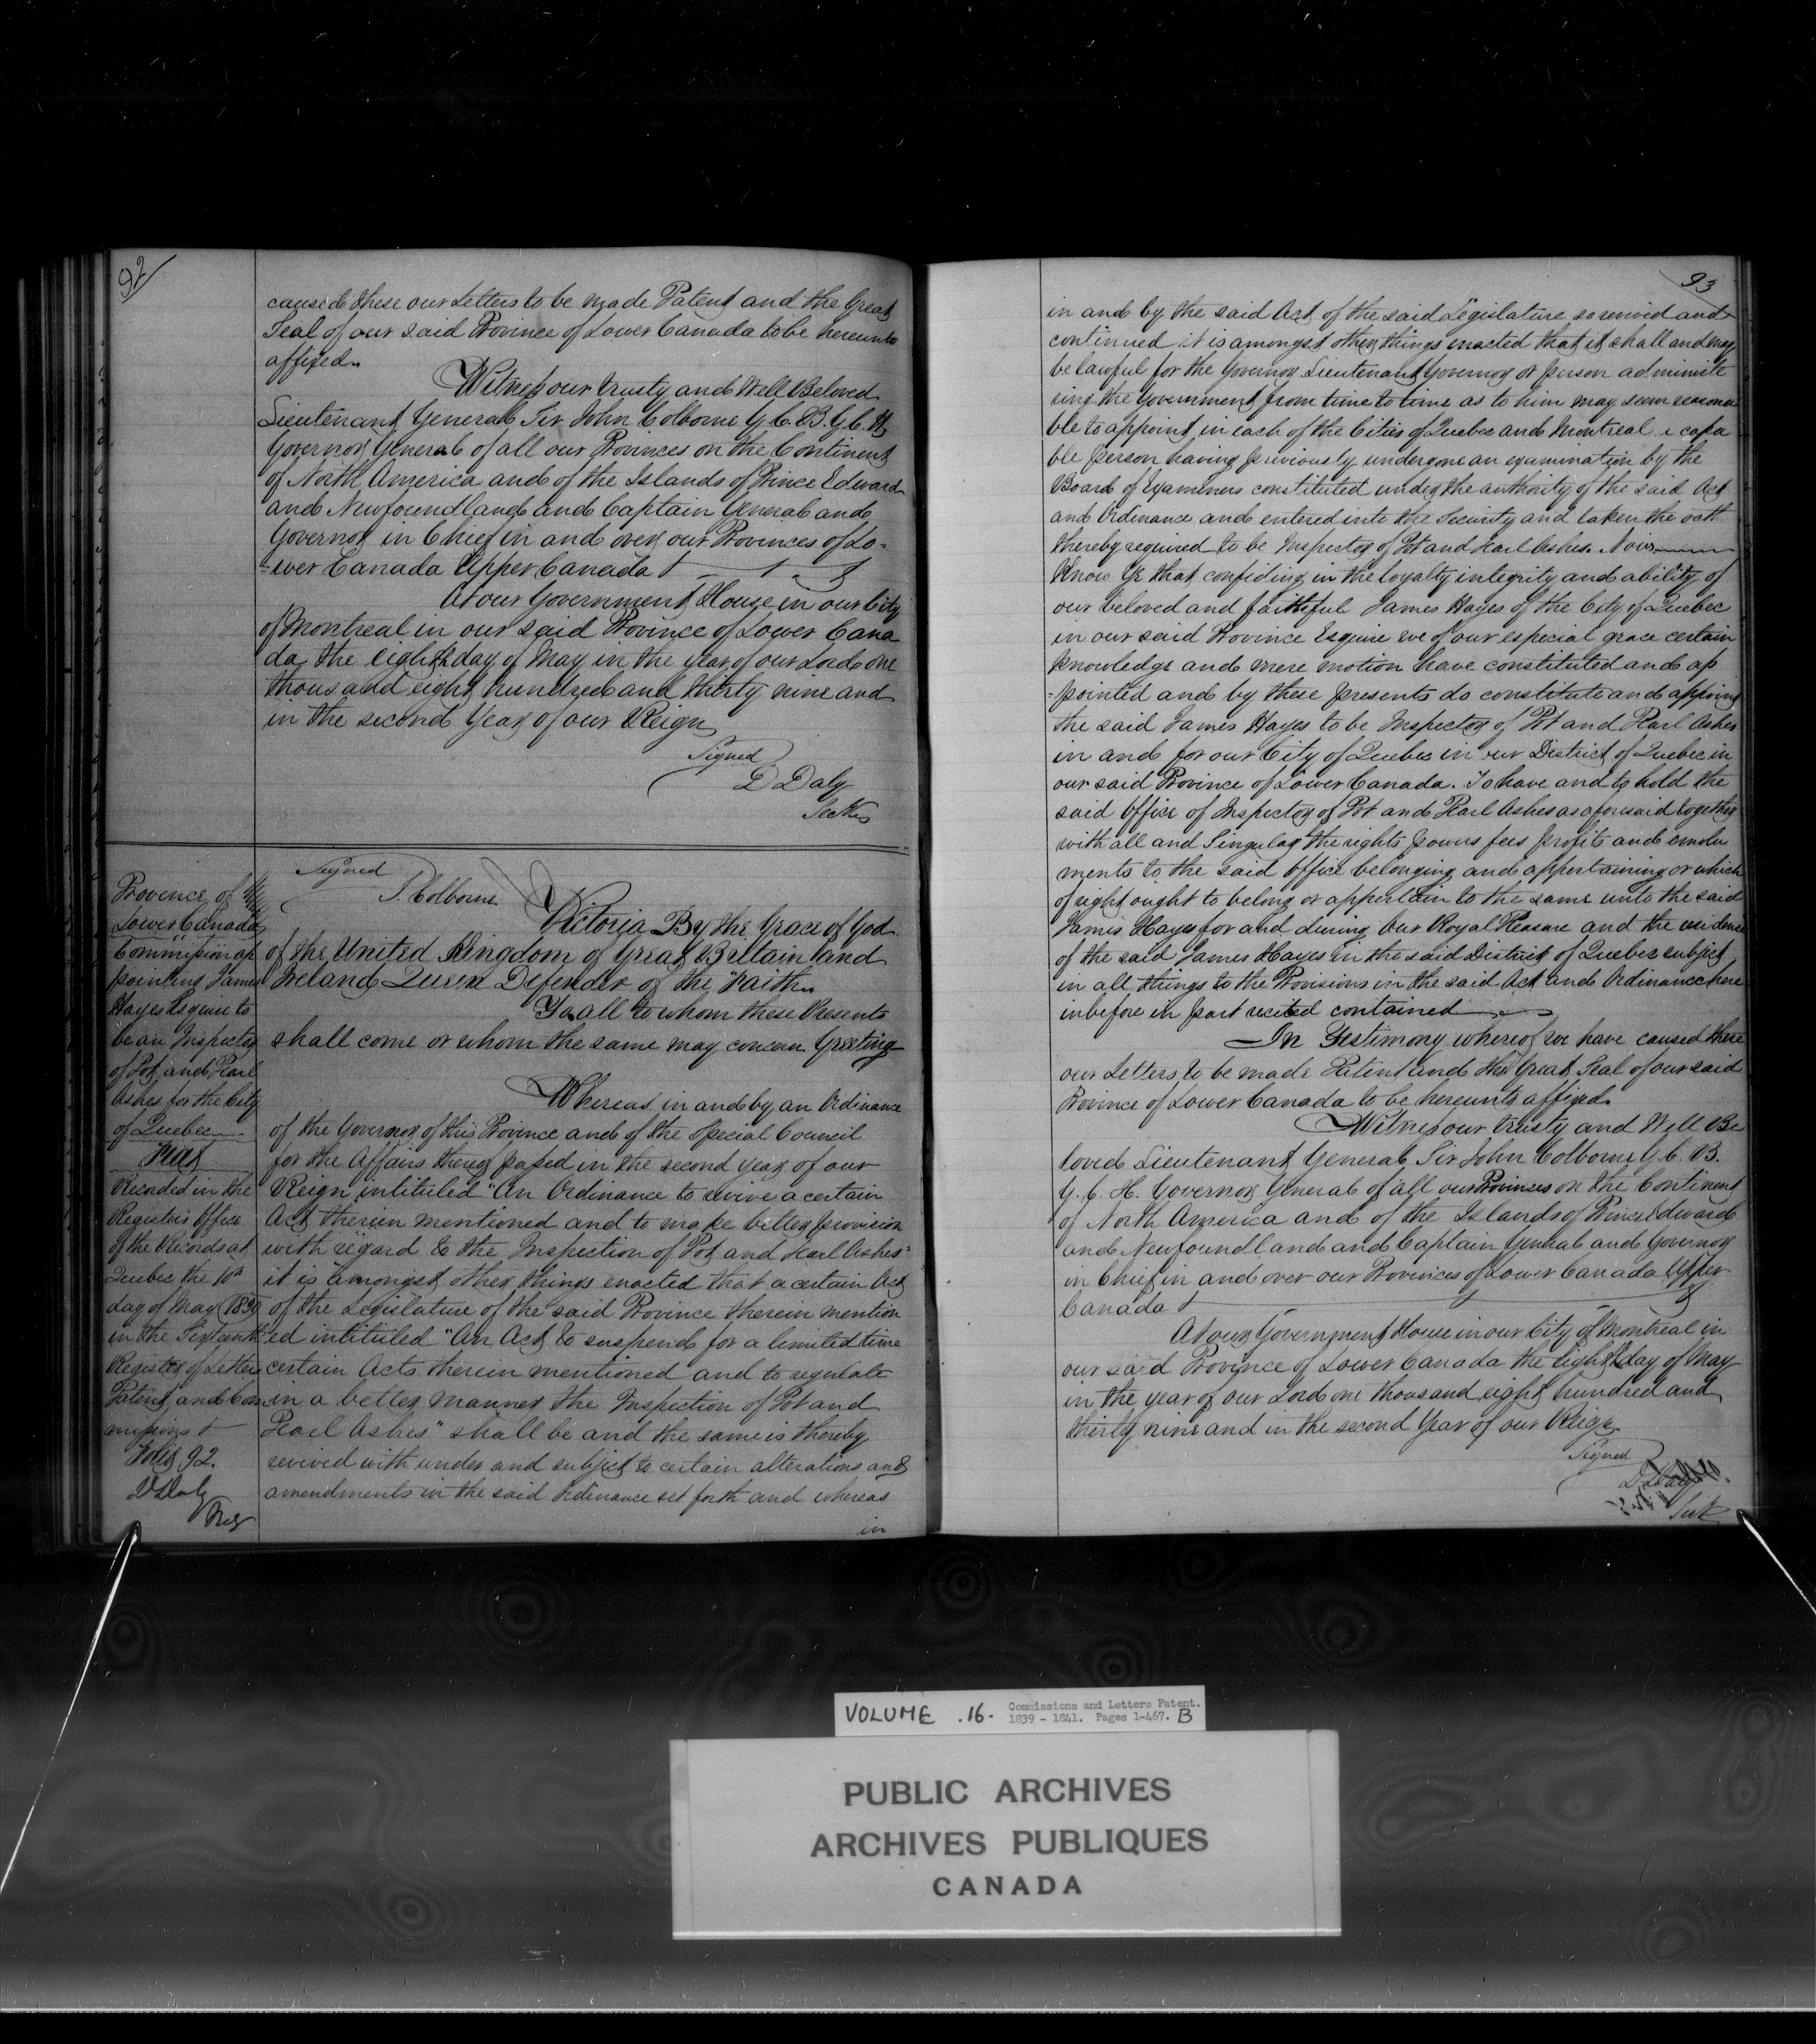 92
caused these our Letters to be made Patent and the Great
Seal of our said Province of Lower Canada to be hereunto
affixed.
Witness our trusty and Well Beloved
Lieutenant General Sir John Colborne G.C.B. G.C.H.
Governor General of all our Provinces on the Continent
of North America and of the Islands of Prince Edward
and Newfoundland and Captain General and
Governor in Chief in and over our Provinces of Lo-
-wer Canada Upper Canada &
At our Government House in our City
of Montreal in our said Province of Lower Cana
da, the eighth day of May in the year of our Lord one
thousand eight hundred and thirty nine and
in the second Year of our Reign
Signed
D Daly
Secty
Province of
Lower Canada
Commission ap
pointing James
Hayes Esquire to
be an Inspector
of Pot and Pearl
Ashes for the City
of Quebec
Fiat
Recorded in the
Registers Office
of the Records at
Quebec the 10th
day of May 1839
in the Sixteenth
Register of Letters
Patent and Com
missions &
Folio 92.
D Daly
Reg
Signed
J. Colborne
Victoria By the Grace of God
of the United Kingdom of Great Brittain and
Ireland Queen Defender of the Faith.
To all to whom these Presents
shall come or whom the same may concern Greeting
Whereas in and by an Ordinance
of the Governor of this Province and of the Special Council
for the Affairs thereof passed in the second year of our
Reign intituled "An Ordinance to revive a certain
Act therein mentioned and to make better provision
with regard to the Inspection of Pot and Pearl Ashes"
it is amongst other things enacted that a certain Act
of the Legislature of the said Province therein mention
ed intituled "An Act to suspend for a limited time
certain Acts therein mentioned and to regulate
in a better manner the Inspection of Pot and
Pearl Ashes" shall be and the same is thereby
revived with under and subject to certain alterations and
amendments in the said Ordinance set forth and whereas
in
93
in and by the said Act of the said Legislature so revived and
continued it is amongst other things enacted that it shall and may
be lawful for the Governor Lieutenant Governor or person administe
ring the Government from time to time as to him may seem reasona
ble to appoint in each of the Cities of Quebec and Montreal a capa
ble person having previously undergone an examination by the
Board of Examiners constituted under the authority of the said Act
and Ordinance and entered into the Security and taken the oath
thereby required to be Inspector of Pot and Pearl Ashes. Now
Know Ye that confiding in the loyalty integrity and ability of
our beloved and faithful James Hayes of the City of Quebec
in our said Province Esquire we of our especial grace certain
knowledge and mere motion have constituted and ap
-pointed and by these presents do constitute and appoint
the said James Hayes to be Inspector of Pot and Pearl Ashes
in and for our City of Quebec in our District of Quebec in
our said Province of Lower Canada. To have and to hold the
said Office of Inspector of Pot and Pearl Ashes as aforesaid together
with all and Singular the rights powers fees profits and emolu
ments to the said Office belonging and appertaining or which
of right ought to belong or appertain to the same unto the said
James Hayes for and during Our Royal Pleasure and the residence
of the said James Hayes in the said District of Quebec subject
in all things to the Provisions in the said Act and Ordinance here
inbefore in part recited contained
In Testimony whereof we have caused these
our Letters to be made Patent and the Great Seal of our said
Province of Lower Canada to be hereunto affixed.
Witness our trusty and Well Be
loved Lieutenant General Sir John Colborne G.C.B.
G.C.H. Governor General of all our Provinces on the Continent
of North America and of the Islands of Prince Edward
and Newfoundland and Captain General and Governor
in Chief in and over our Provinces of Lower Canada Upper
Canada &
At our Government House in our City of Montreal in
our said Province of Lower Canada the eighth day of May
in the year of our Lord one thousand eight hundred and
thirty nine and in the second Year of our Reign
Signed
D Daly
Secty
VOLUME .16. Commissions and Letters Patent.
1839 - 1841. Pages 1-467. B
PUBLIC ARCHIVES
ARCHIVES PUBLIQUES
CANADA